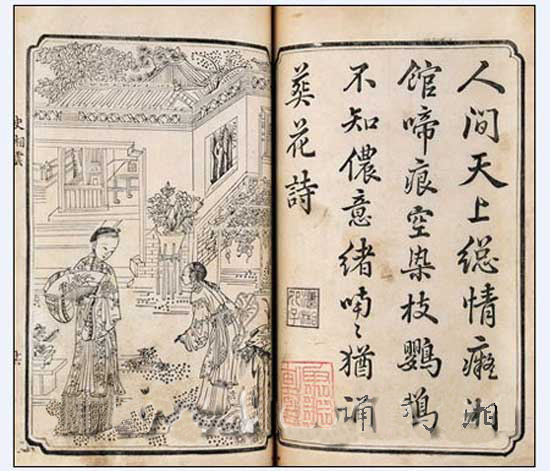 人间天上总情痴湘
馆啼痕空染枝鹦鹉
不知侬意绪喃々犹诵
葬花詩
史湘雲